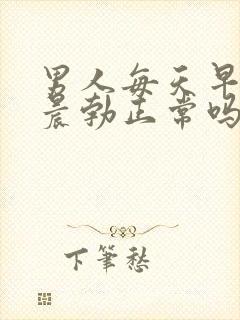 男人每天早
晨勃正常吗
下筆愁